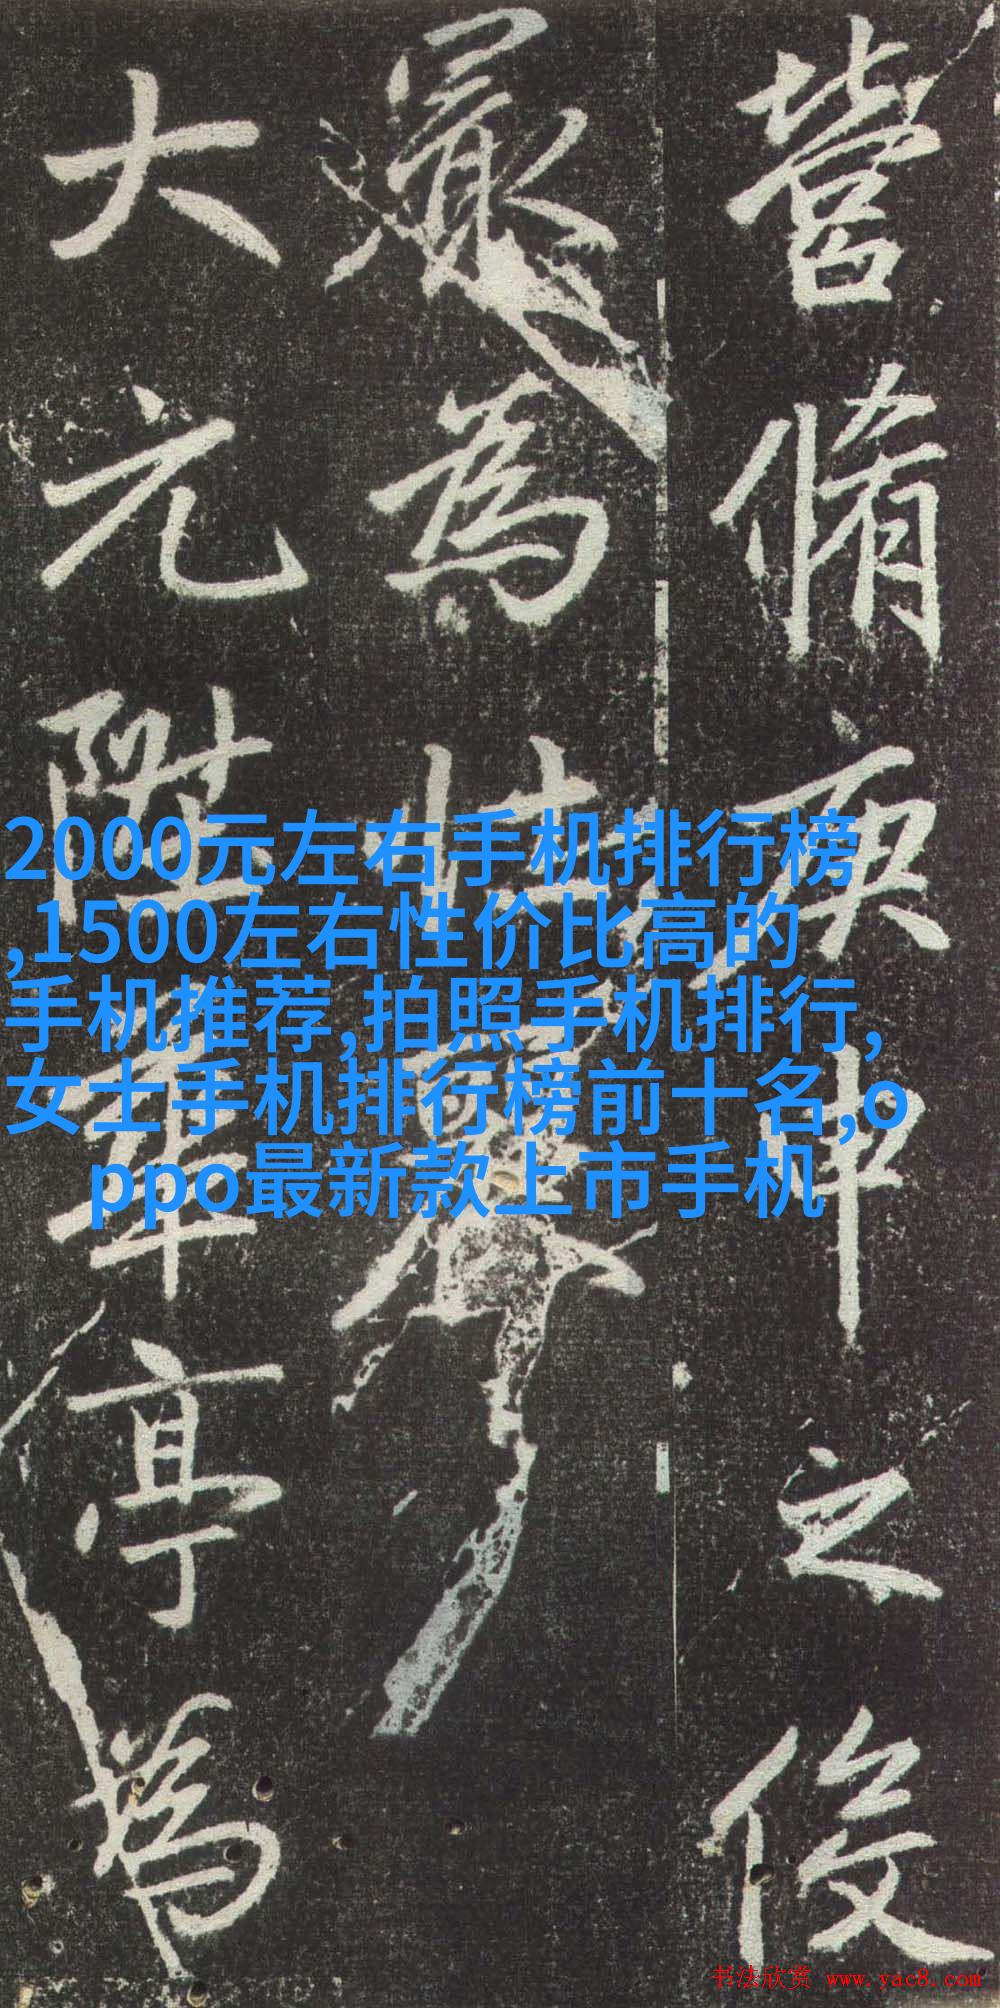 營脩庚申之後
最為
大元陞華亭為
2000元左右手机排行榜
,1500左右性价比高的
手机推荐,拍照手机排行,
女士手机排行榜前十名,o
ppo最新款上市手机
书法欣赏 www.yac8.com